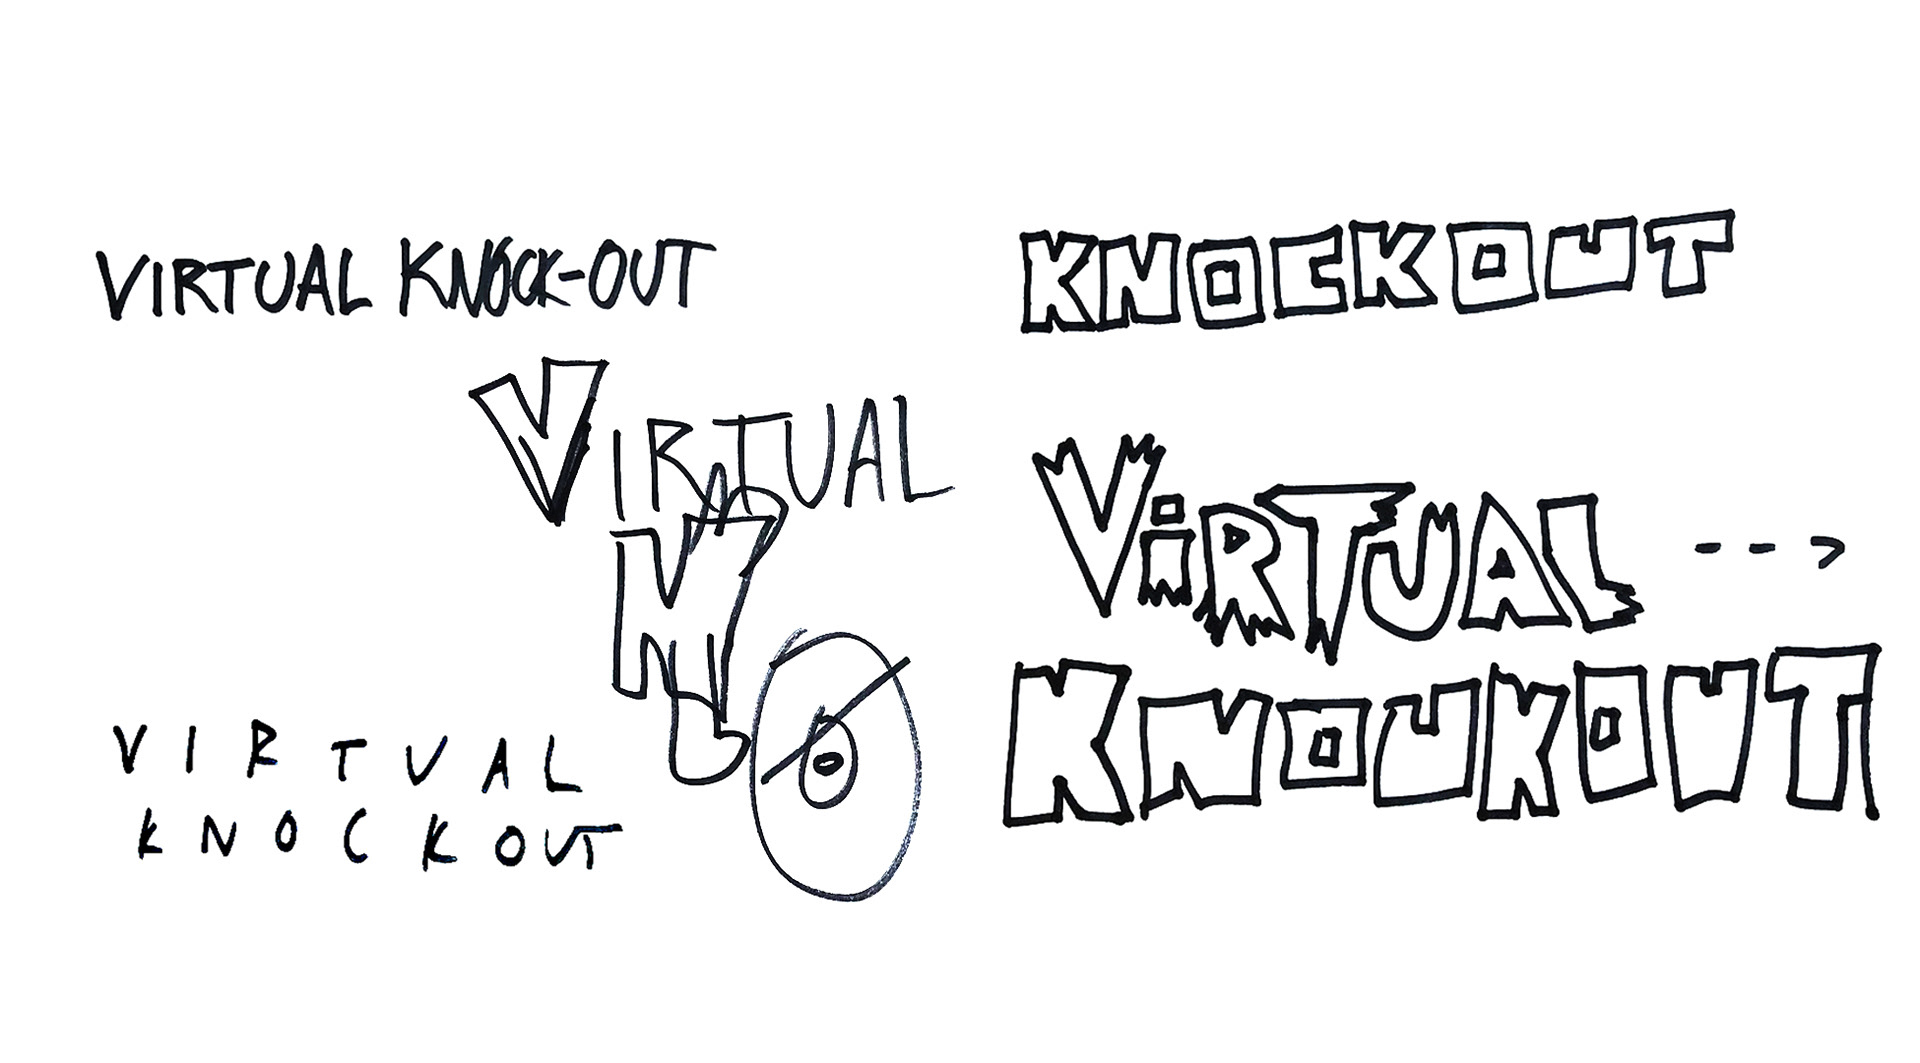 VIRTUAL KNOCK-OUT
KNOCKOUT
VIRTUAL
ViRTUAL
KNOUKOUT
VIRTUAL
KNOCKOUT